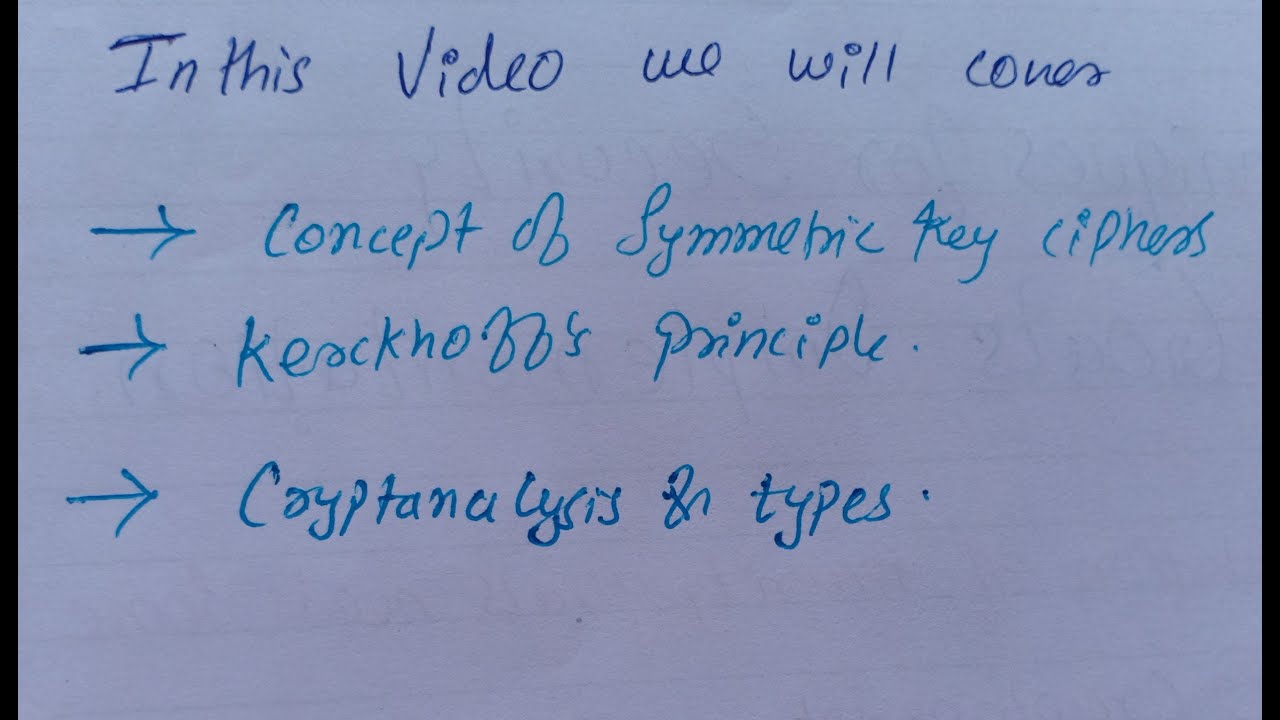 In this Video we will cover
→ Concept of Symmetric Key ciphers
→ Kerckhoff's principle.
→ Cryptanalysis & types.